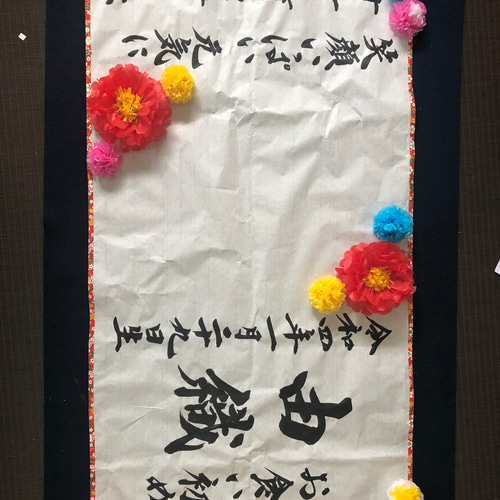 お食い初め
由織
令和四年一月二十九日生
笑顔いっぱい元気に